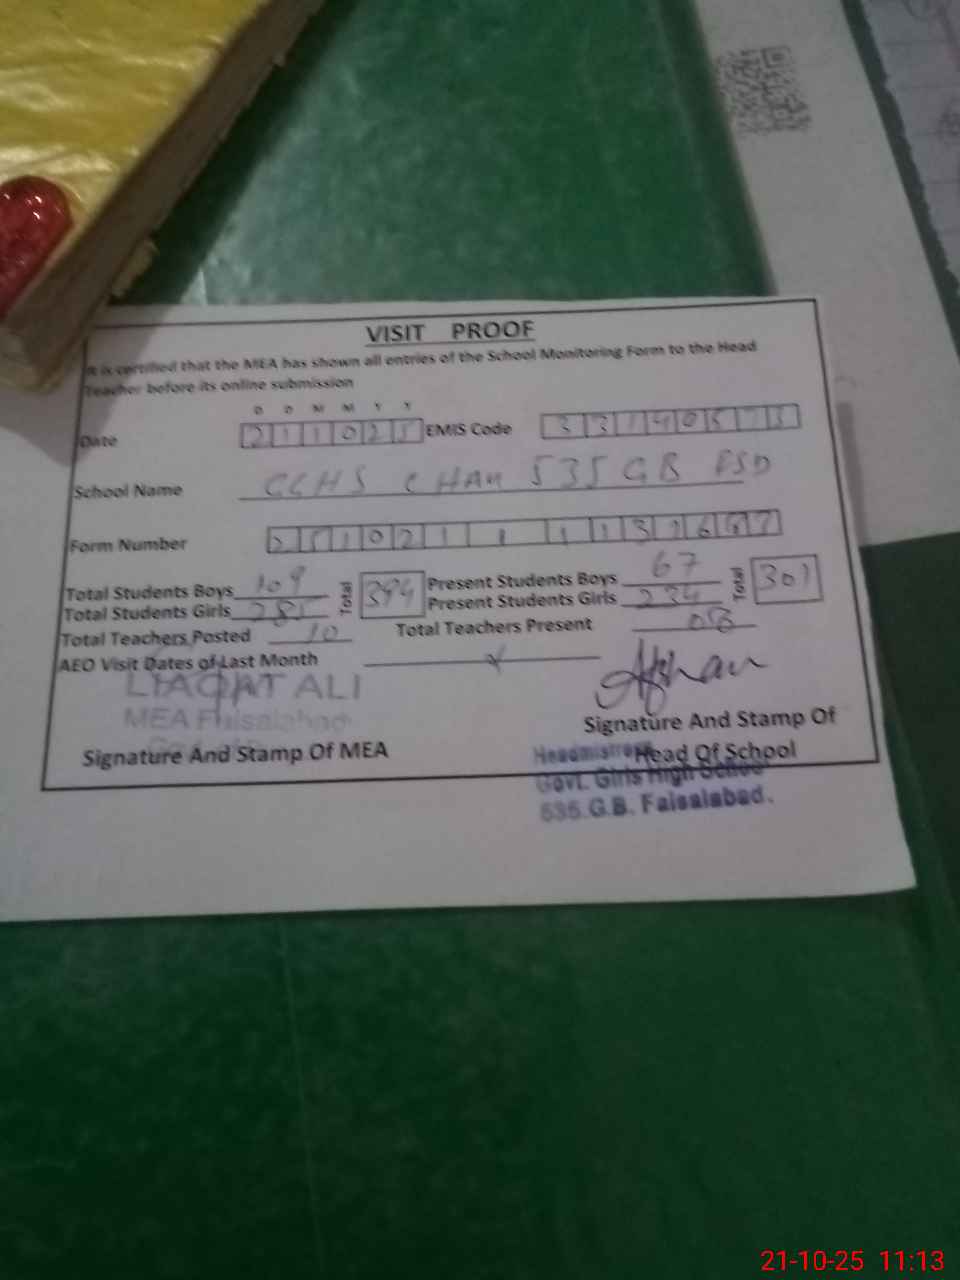 VISIT PROOF
It is certified that the MEA has shown all entries of the School Monitoring Form to the Head
Teacher before its online submission
D D M M Y Y
Date 211025 EMIS Code
School Name 535 GB FSD
Form Number
Total Students Boys 109 Total 394 Present Students Boys 67 Total 301
Total Students Girls 285 Present Students Girls 234
Total Teachers Posted 10 Total Teachers Present 08
AEO Visit Dates of Last Month
LIAQAT ALI
MEA Faisalabad
Signature And Stamp Of MEA
Afshan
Signature And Stamp Of
Head Of School
Headmistress
Govt. Girls High School
535.G.B. Faisalabad.
21-10-25 11:13